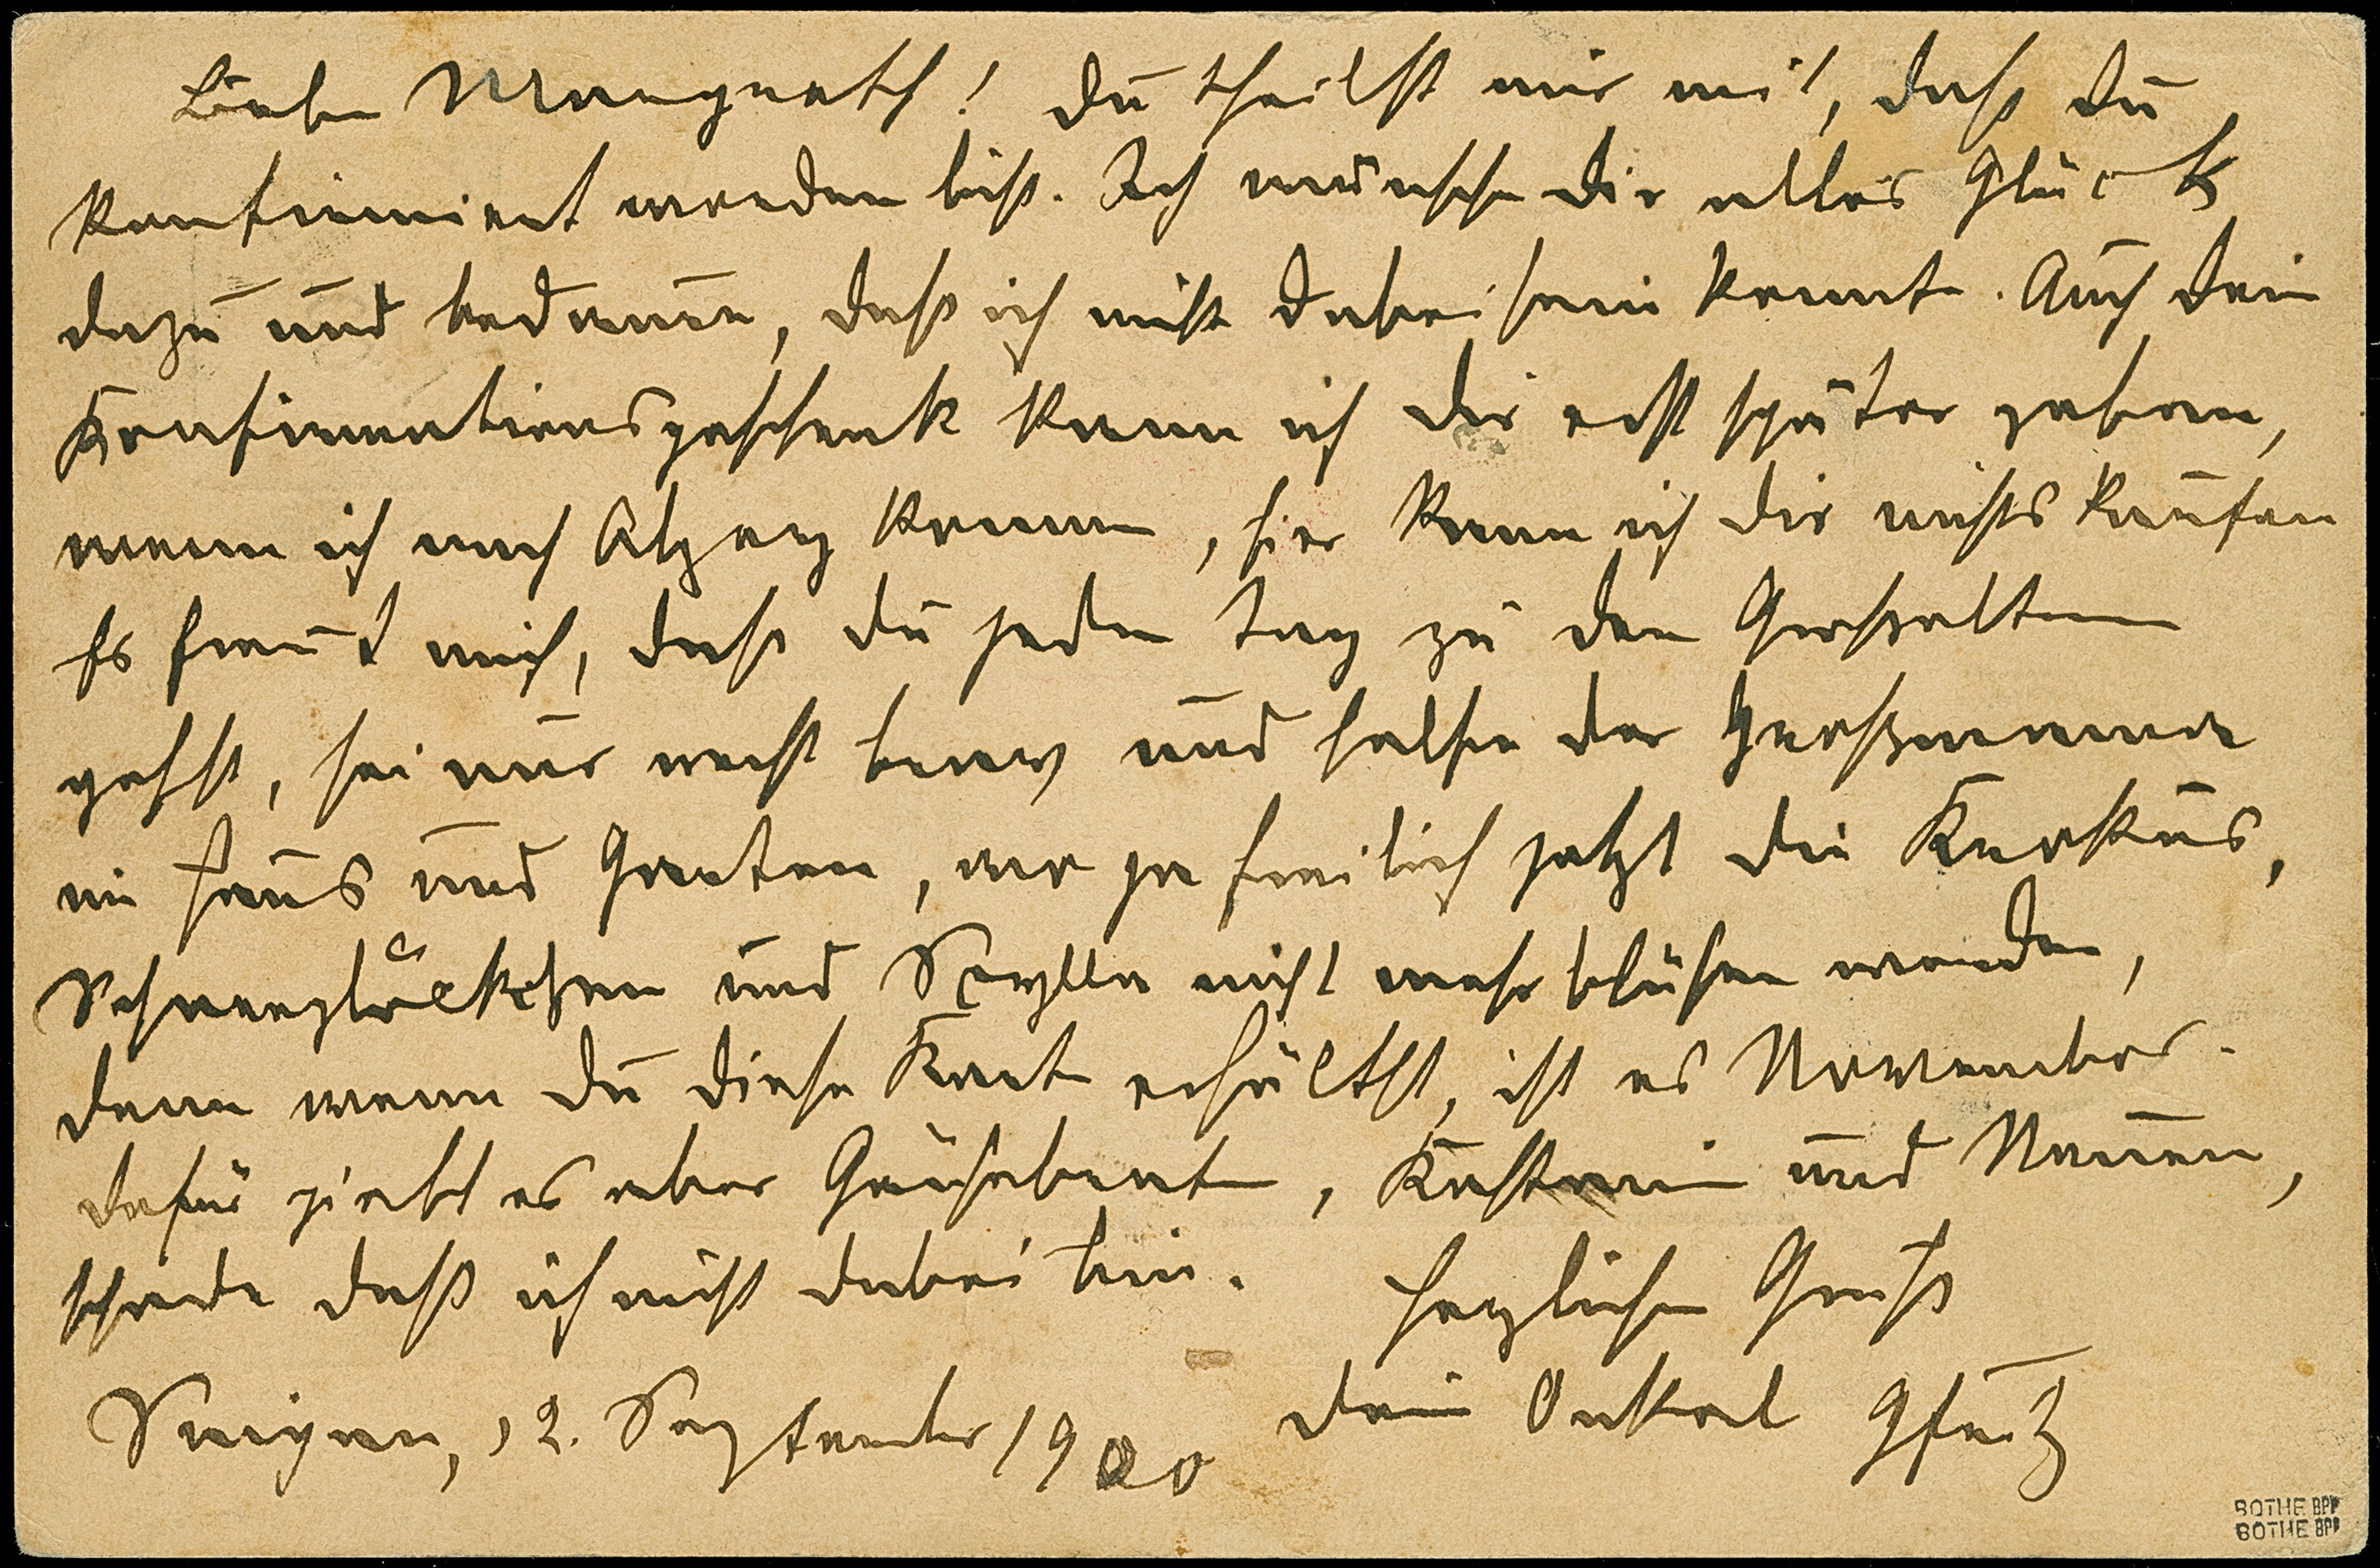 Liebe Margreth! Du theilst mir mit, daß Du
konfirmiert worden bist. Ich wünsche Dir alles Glück
dazu und bedaure, daß ich nicht dabei sein konnte. Auch Dein
Konfirmationsgeschenk kann ich Dir erst später geben,
wenn ich nach komme, hier kann ich Dir nichts kaufen
Es freut mich, daß Du jeden Tag zu den Großeltern
gehst, sei nur recht brav und helfe der Großmama
in Haus und Garten, wo ja freilich jetzt die Krokus,
Schneeglöckchen und Scylla nicht mehr blühen werden,
denn wenn Du diese Karte erhältst, ist es November.
Dafür giebt es aber Gänsebraten, Kastanien und Maronen,
schade daß ich nicht dabei bin. Herzlichen Gruß
Saigon, 12. September 1900 Dein Onkel
BOTHE BPP
BOTHE BPP